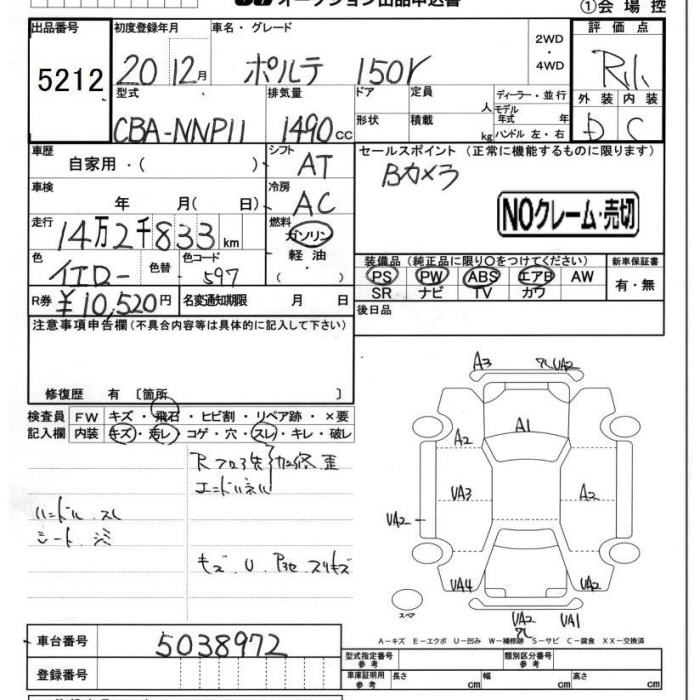 オークション出品申込書
①会場控
出品番号 初度登録年月 車名・グレード 2WD・4WD 評価点
5212 20 12月 ポルテ 150r
型式 排気量 ドア 定員 人 ディーラー・並行 外装 内装
CBA-NNP11 1490cc 形状 積載 kg モデル年式 年 ハンドル 左・右 D C
車歴 自家用・( ) シフト AT セールスポイント (正常に機能するものに限ります)
Bカメラ
車検 年 月( 日) 冷房 AC
NOクレーム・売切
走行 14万2千833km 燃料 ガソリン 軽油 ( )
色 イエロー 色替 色コード 597
装備品 (純正品に限り〇をつけてください) 新車保証書
PS PW ABS エアB AW 有・無
SR ナビ TV カワ
R券 ¥10,520円 名変通知期限 月 日 後日品
注意事項申告欄(不具合内容等は具体的に記入して下さい)
修復歴 有 〔箇所 〕
検査員 FW キズ・飛石・ヒビ割・リペア跡・×要
記入欄 内装 キズ・汚レ・コゲ・穴・スレ・キレ・破レ
Rフロア
エンドパネル
ハンドル スレ
シート シミ
キズ U
A3 UA2
A1
A2
UA3 A2
UA2
UA4 UA2
UA2 UA1
スペア
A-キズ E-エクボ U-凹み W-補修跡 S-サビ C-腐食 XX-交換済
車台番号 5038972
型式指定番号 参考 類別区分番号 参考
登録番号
車庫証明用 参考 長さ cm 幅 cm 高さ cm